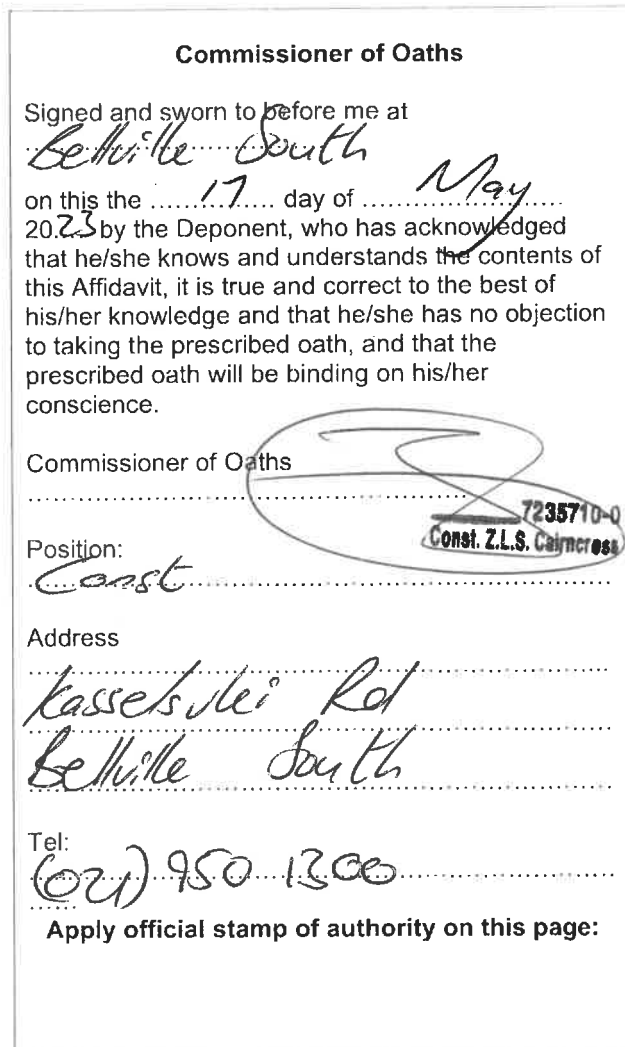 Commissioner of Oaths
Signed and sworn to before me at
Bellville South
on this the ......17.... day of ........May........
20.23 by the Deponent, who has acknowledged
that he/she knows and understands the contents of
this Affidavit, it is true and correct to the best of
his/her knowledge and that he/she has no objection
to taking the prescribed oath, and that the
prescribed oath will be binding on his/her
conscience.
Commissioner of Oaths
7235710-0
Const. Z.L.S. Cairncross
Position:
Const
Address
Kasselsvlei Rd
Bellville South
Tel:
(021) 950 1300
Apply official stamp of authority on this page: